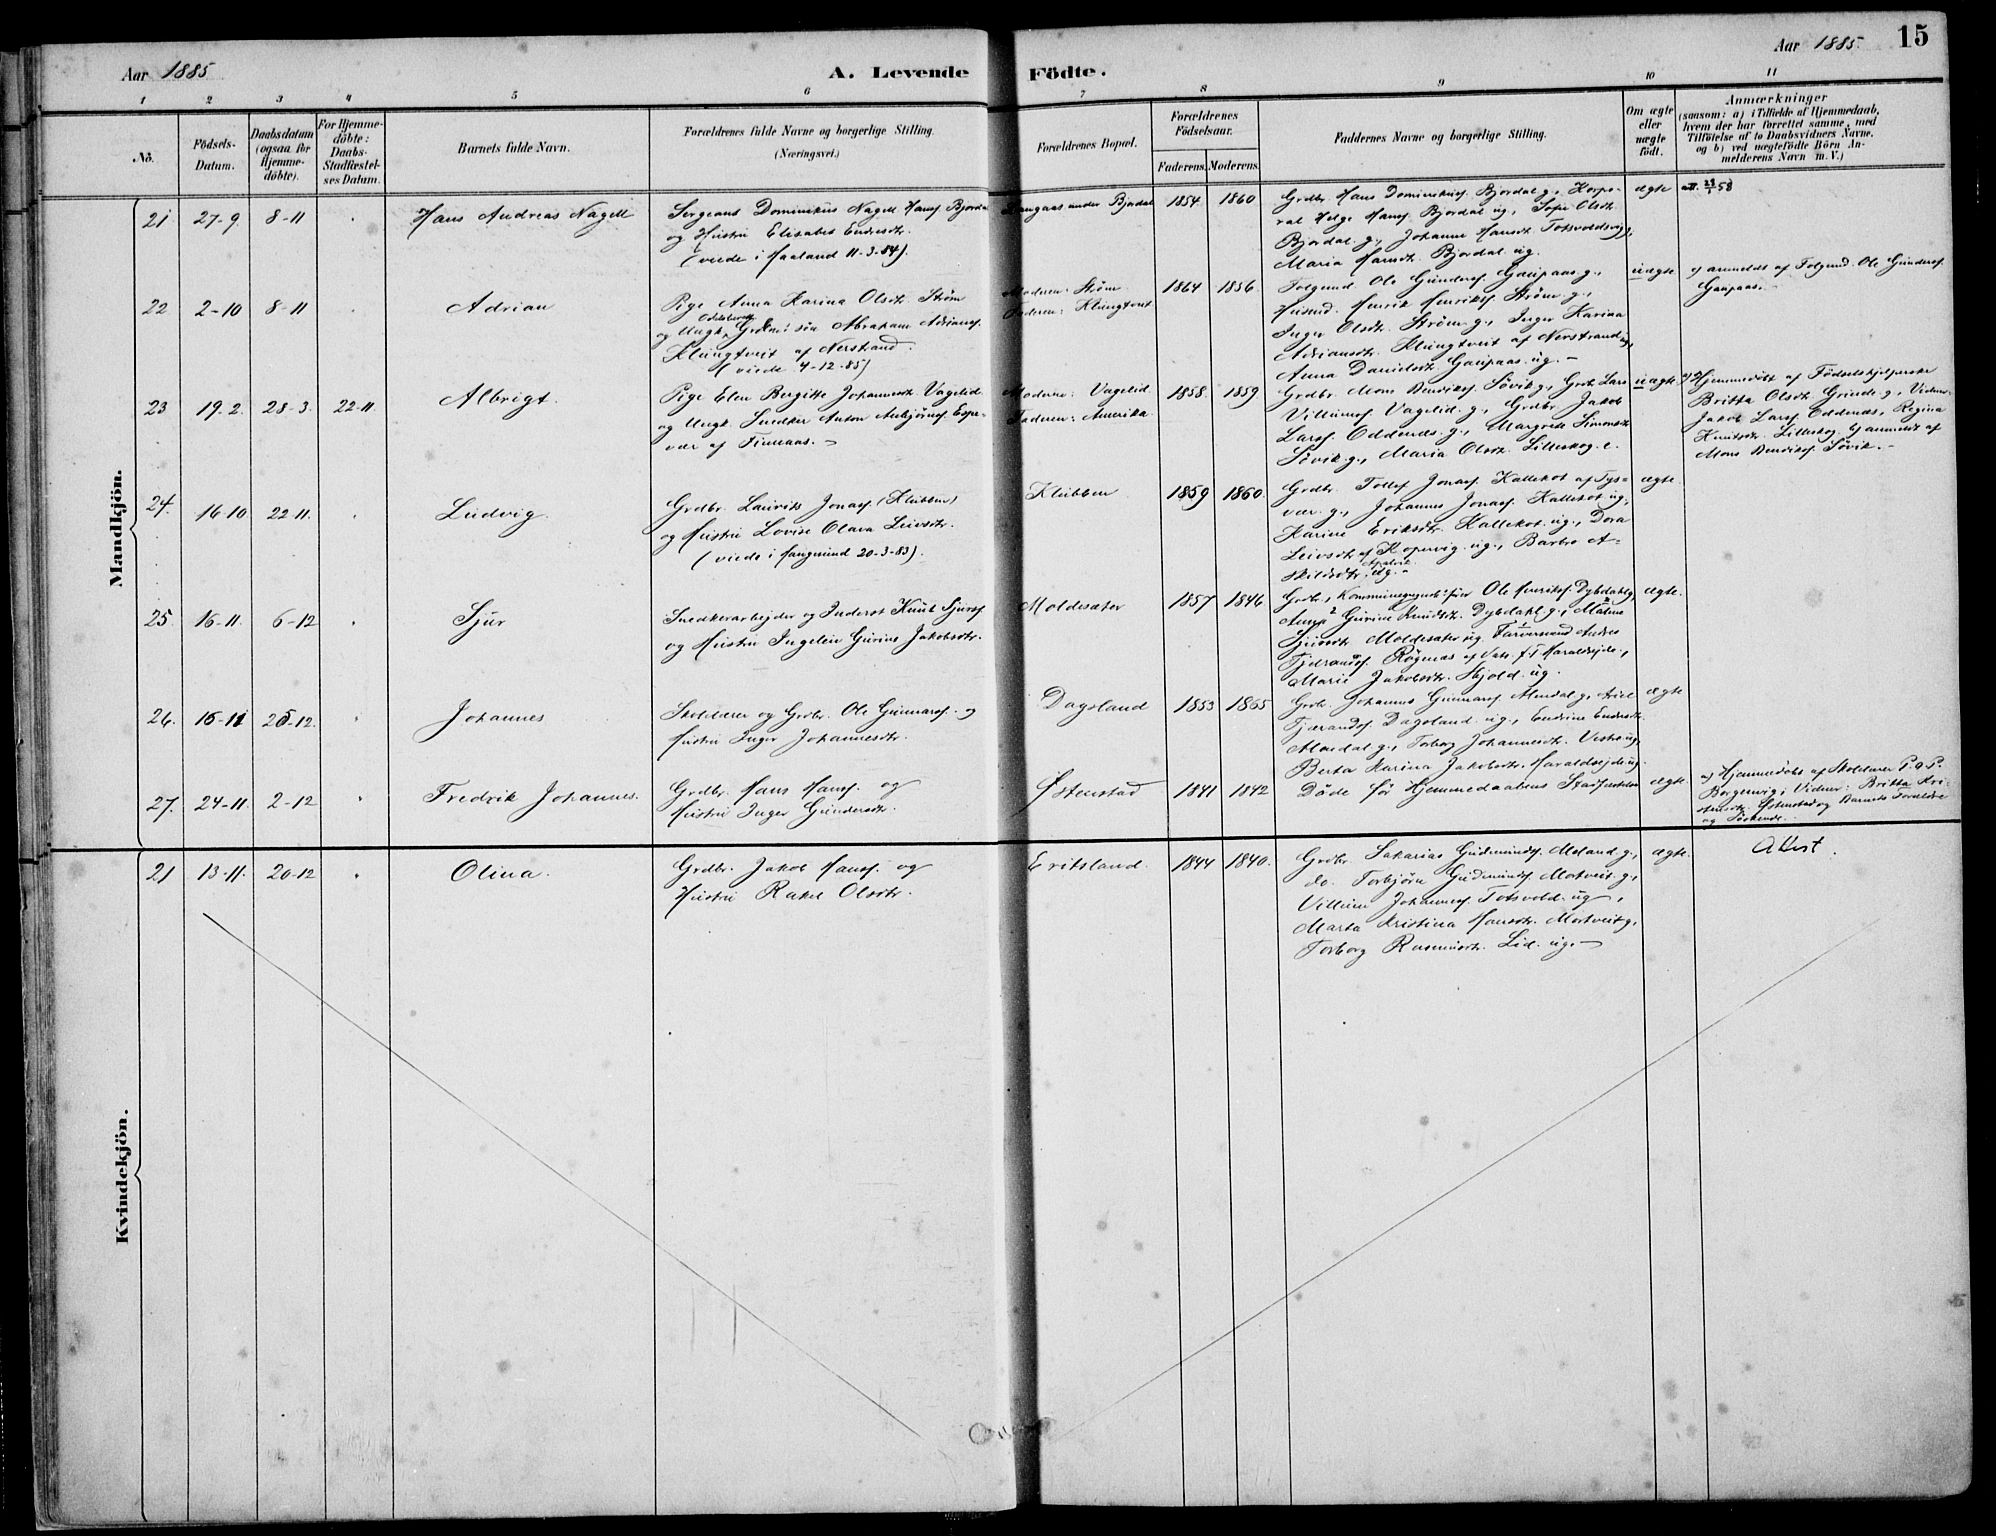 Aar 1885
A. Levende Födte.
Aar 1885. 15
1 2 3 4 5 6 7 8 9 10 11
No.
Födsels-Datum.
Daabsdatum (ogsaa for Hjemme-döbte).
For Hjemme-döbte: Daabs-Stadfæstel-ses Datum.
Barnets fulde Navn.
Forældrenes fulde Navne og borgerlige Stilling.
(Næringsvei.)
Forældrenes Bopæl.
Forældrenes Födselsaar.
Faderens. Moderens.
Faddernes Navne og borgerlige Stilling.
Om ægte eller uægte födt.
Anmærkninger
(saasom: a) i Tilfælde af Hjemmedaab,
hvem der har forrettet samme, med
Tilföielse af to Daabsvidners Navne,
og b) ved uægtefödte Börn An-
melderens Navn m. V.)
Mandkjön.
21 27-9. 8-11 Hans Andreas Nagell
Sergeant Dominikus Nagell Hansf. Bjordal
og Hustru Elisabet Endresdtr.
(viede i Haaland 11-3-84).
under Bjordal 1854 1860
Grdbr. Hans Dominikusf. Bjordal g., Korpo-
ral Helge Hansf. Bjordal ug., Sofie Olsdtr.
Bjordal g., Johanne Hansdtr. Totsvoldsvig g.,
Maria Hansdtr. Bjordal ug.
ægte
att. 28/1 58
22 2-10 8-11 Adrian
Pige Anna Karina Olsdtr. Ström
og Ungk. Grdmd. sön Abraham Adriansf.
Klungtveit af Nerstrand.
(viede 4-12-85)
Moderen: Ström
Faderen: Klungtveit
1864 1856.
Folgemd. Ole Gundersf. Gaupaas g.,
Husmd. Henrik Henriksf. Ström g.,
Inger Olsdtr. Ström g., Inger Karina
Adriansdtr. Klungtveit af Nerstrand ug.,
Anna Danielsdtr. Gaupaas ug. -
uægte
anmeldt af Folgemd. Ole Gundersf.
Gaupaas. -
23 19-2. 28-3. 22-11 Albrigt.
Pige Elen Bergitte Johannesdtr. Vagelid
og Ungk. Snedker Anton Asbjörnsf. Espe-
vær af Finnaas. -
Moderen: Vagelid
Faderen: Amerika.
1858. 1859.
Grdbr. Mons Bendiksf. Sövik g., Grdbr. Lars
Villumsf. Vagelid g., Grdbr. Jakob
Larsf. Oddenæs g., Margrete Simonsdtr.
Sövik g., Maria Olsdtr. Lilleskog e.
uægte
Hjemmedöbt af Födselshjelperske
Britta Olsdtr. Grinde g., Vidner:
Jakob Larsf. Oddenæs, Regina
Knutsdtr. Lilleskog. Anmeldt af
Mons Bendiksf. Sövik. -
24. 16-10 22-11. Ludvig.
Grdbr. Laurits Jonasf. (Klubben)
og Hustru Lovise Olava Leivsdtr.
(viede i Haugesund 20-3-83).
Klubben 1859 1860.
Grdbr. Tollef Jonasf. Kallekot af Tys-
vær g., Johannes Jonasf. Kallekot ug.,
Karine Eriksdtr. Kallekot ug., Dora
Leivsdtr. af Kopervig ug., Barbro A-
skildsdtr. ug. -
ægte.
25. 16-11. 6-12 Sjur
Snedkerarbejder og Inderst Knut Sjursf.
og Hustru Ingelen Gurine Jakobsdtr.
Moldesæter 1857 1846
Grdbr., Ole Dybdahl g.,
Anna Gurine Knudsdtr. Dybdahl g., Malene
Sjursdtr. Moldesæter ug.
Marie Jakobsdtr. Skjold ug.
ægte.
26. 15-11 25-12. Johannes
Skolelærer og Grdbr. Ole Gunnarsf. og
Hustru Inger Johannesdtr.
Dagsland 1853 1865
Grdbr. Johannes Gunnarsf.
Dagsland ug., Endresdtr.
Torborg Johannesdtr.
Berta Karina Jakobsdtr.
ægte
27. 24-11. 2-12 Fredrik Johannes.
Grdbr. Hans Hansf. og
Hustru Inger Gundersdtr.
Ystenstad 1841 1842
Döde för Hjemmedaabens Stadfæstelse
ægte
a) Hjemmedöbt af Skolelærer P. G. P.
Borgenvig; Vidner: Britta Kri-
stensdtr. Ystenstad og Barnets Forældre
og Söskende.
Kvindekjön.
21 13-11. 20-12 Olina.
Grdbr. Jakob Hansf. og
Hustru Rakel Olsdtr.
Eritsland. 1844 1840.
Grdbr. Sakarias Gudmundsf. Meland g.,
do. Torbjörn Gudmundsf. Motveit g.,
Villum Johannesf. Totsvold ug.,
Marta Kristina Hansdtr. Motveit g.,
Torborg Rasmusdtr. Lid ug. -
ægte.
Attest.